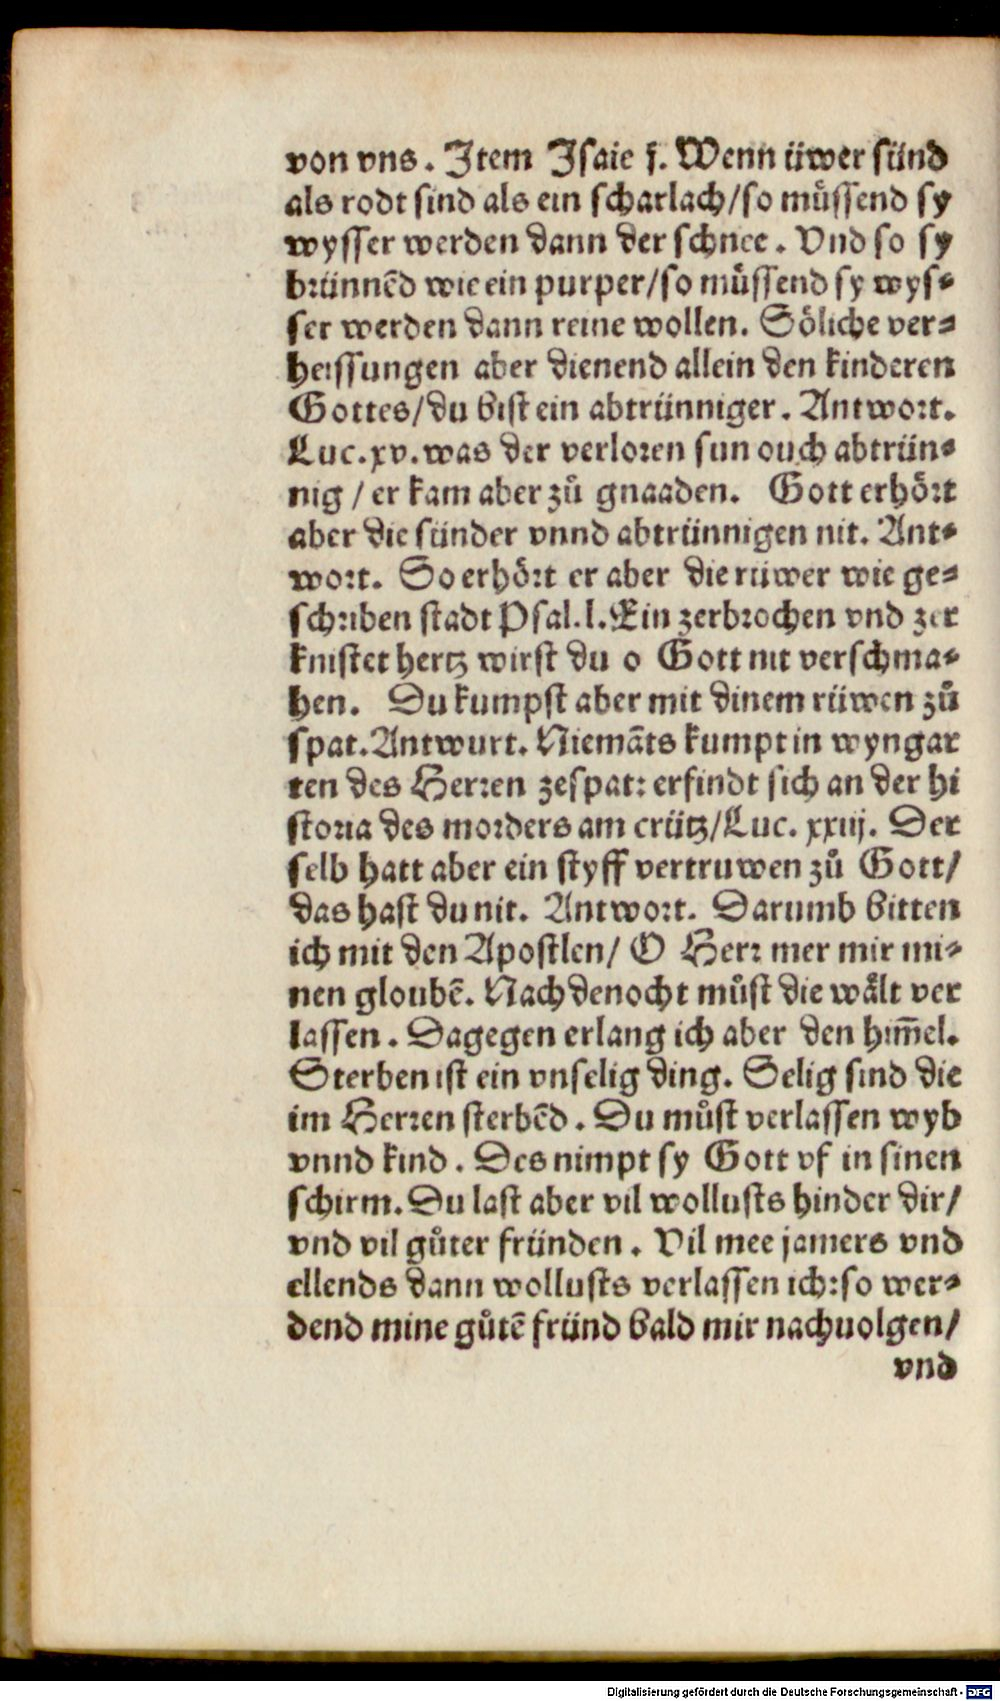 von vns. Item Isaie j. Wenn üwer sünd
als rodt sind als ein scharlach/so müssend sy
wysser werden dann der schnee. Vnd so sy
brünnēd wie ein purper/so müssend sy wys-
ser werden dann reine wollen. Söliche ver-
heissungen aber dienend allein den kinderen
Gottes/du bist ein abtrünniger. Antwort.
Luc.xv.was der verloren sun ouch abtrün-
nig / er kam aber zů gnaaden. Gott erhört
aber die sünder vnnd abtrünnigen nit. Ant-
wort. So erhört er aber die rüwer wie ge-
schriben stadt Psal.l.Ein zerbrochen vnd zer
knistet hertz wirst du o Gott nit verschma-
hen. Du kumpst aber mit dinem rüwen zů
spat.Antwurt. Niemāts kumpt in wyngar
ten des Herren zespat: erfindt sich an der hi
storia des morders am crütz/Luc. xxiij. Der
selb hatt aber ein styff vertruwen zů Gott/
das hast du nit. Antwort. Darumb bitten
ich mit den Apostlen/ O Herr mer mir mi-
nen gloubē. Nach denocht můst die wält ver
lassen. Dagegen erlang ich aber den him̄el.
Sterben ist ein vnselig ding. Selig sind die
im Herren sterbēd. Du můst verlassen wyb
vnnd kind. Des nimpt sy Gott vf in sinen
schirm. Du last aber vil wollusts hinder dir/
vnd vil gůter fründen. Vil mee jamers vnd
ellends dann wollusts verlassen ich:so wer-
dend mine gůtē fründ bald mir nachuolgen/
vnd
Digitalisierung gefördert durch die Deutsche Forschungsgemeinschaft - DFG